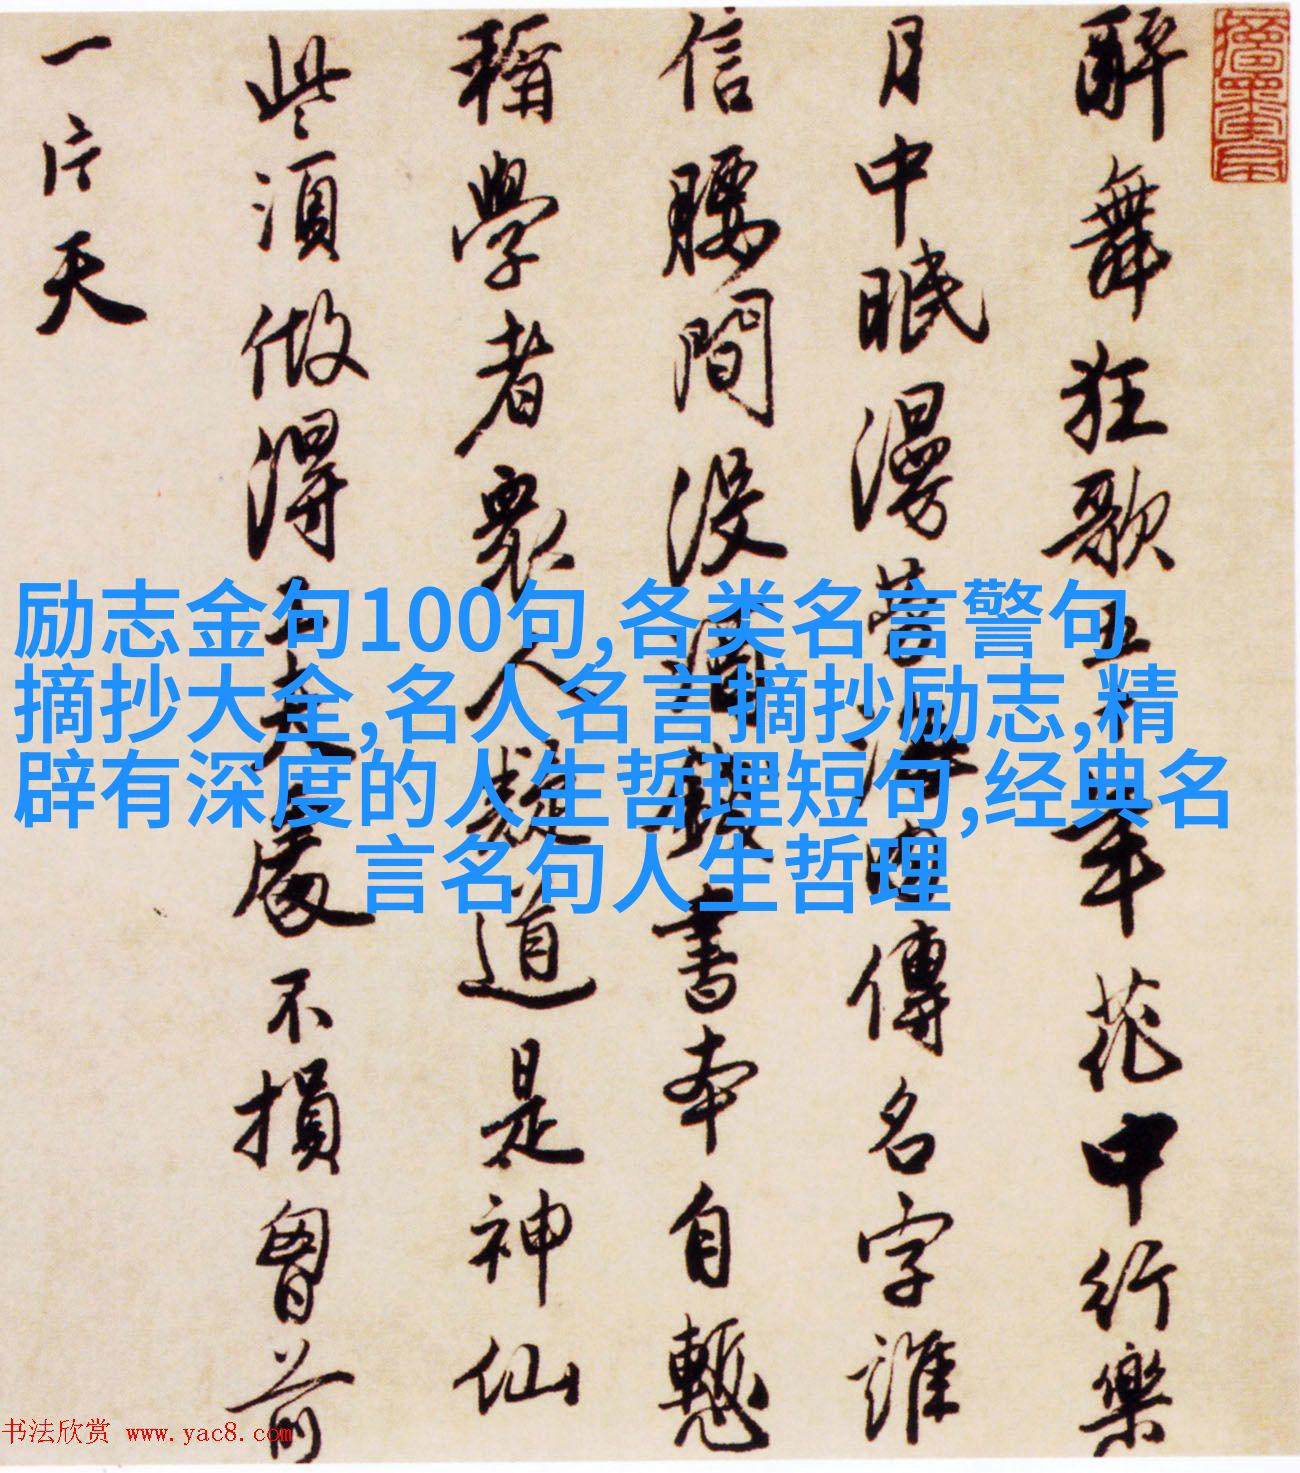 醉舞狂歌五十年花中行樂
月中眠漫勞海內傳名字誰
信腰間沒酒錢書本自慙
稱學者衆人疑道是神仙
些須做得工夫處不損胷前
一片天
励志金句100句,各类名言警句
摘抄大全,名人名言摘抄励志,精
辟有深度的人生哲理短句,经典名
言名句人生哲理
书法欣赏 www.yac8.com